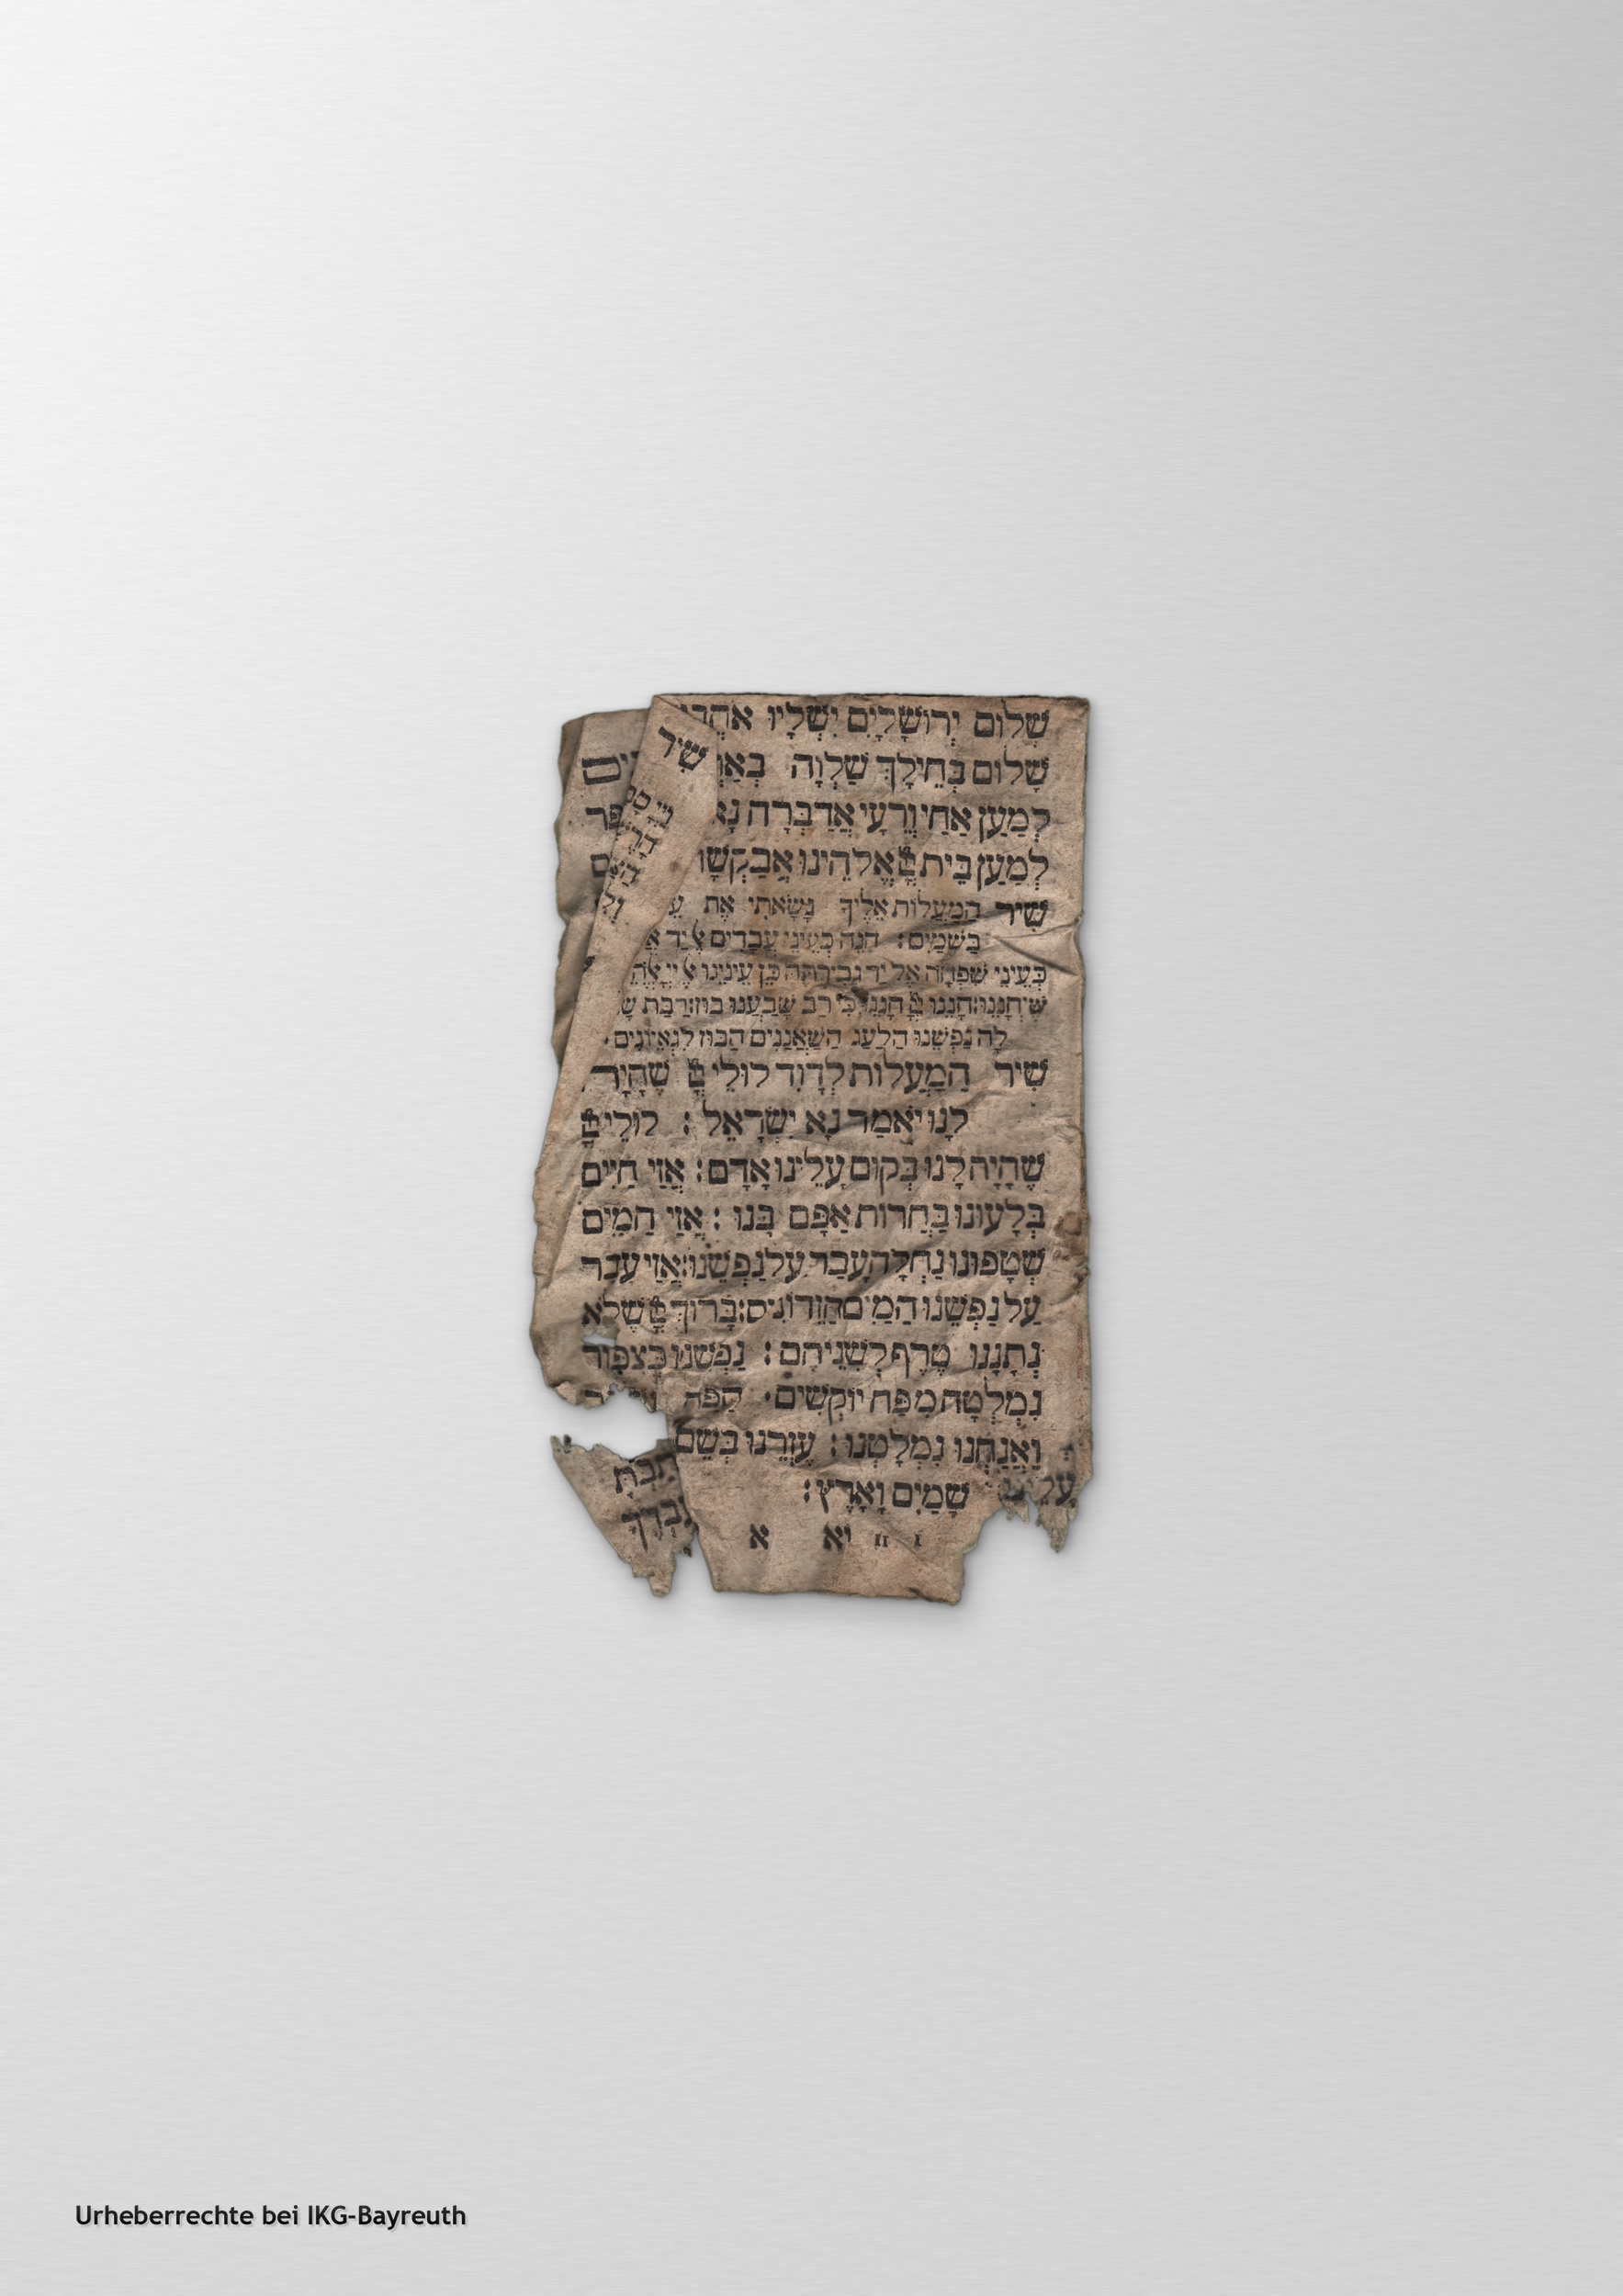 שְׁלוֹם יְרוּשָׁלָיִם יִשְׁלָיוּ
שִׁיר
שָׁלוֹם בְּחֵילֵךְ שַׁלְוָה
לְמַעַן אַחַי וְרֵעָי אֲדַבְּרָה נָּא
לְמַעַן בֵּית אֱלֹהֵינוּ אֲבַקְשָׁה
שִׁיר הַמַּעֲלוֹת אֵלֶיךָ נָשָׂאתִי אֶת
בַּשָּׁמָיִם: הִנֵּה כְעֵינֵי עֲבָדִים אֶל יַד
כְּעֵינֵי שִׁפְחָה אֶל יַד גְּבִרְתָּהּ כֵּן עֵינֵינוּ אֶל
שֶׁיְּחָנֵּנוּ: חָנֵּנוּ חָנֵּנוּ כִּי רַב שָׂבַעְנוּ בוּז: רַבַּת
לָהּ נַפְשֵׁנוּ הַלַּעַג הַשַּׁאֲנַנִּים הַבּוּז לִגְאֵיוֹנִים
שִׁיר הַמַּעֲלוֹת לְדָוִד לוּלֵי שֶׁהָיָה
לָנוּ יֹאמַר נָא יִשְׂרָאֵל: לוּלֵי
שֶׁהָיָה לָנוּ בְּקוּם עָלֵינוּ אָדָם: אֲזַי חַיִּים
בְּלָעוּנוּ בַּחֲרוֹת אַפָּם בָּנוּ: אֲזַי הַמַּיִם
שְׁטָפוּנוּ נַחְלָה עָבַר עַל נַפְשֵׁנוּ: אֲזַי עָבַר
עַל נַפְשֵׁנוּ הַמַּיִם הַזֵּדוֹנִים: בָּרוּךְ שֶׁלֹּא
נְתָנָנוּ טֶרֶף לְשִׁנֵּיהֶם: נַפְשֵׁנוּ כְּצִפּוֹר
נִמְלְטָה מִפַּח יוֹקְשִׁים הַפַּח
וַאֲנַחְנוּ נִמְלָטְנוּ: עֶזְרֵנוּ בְּשֵׁם
שָׁמַיִם וָאָרֶץ:
Urheberrechte bei IKG-Bayreuth